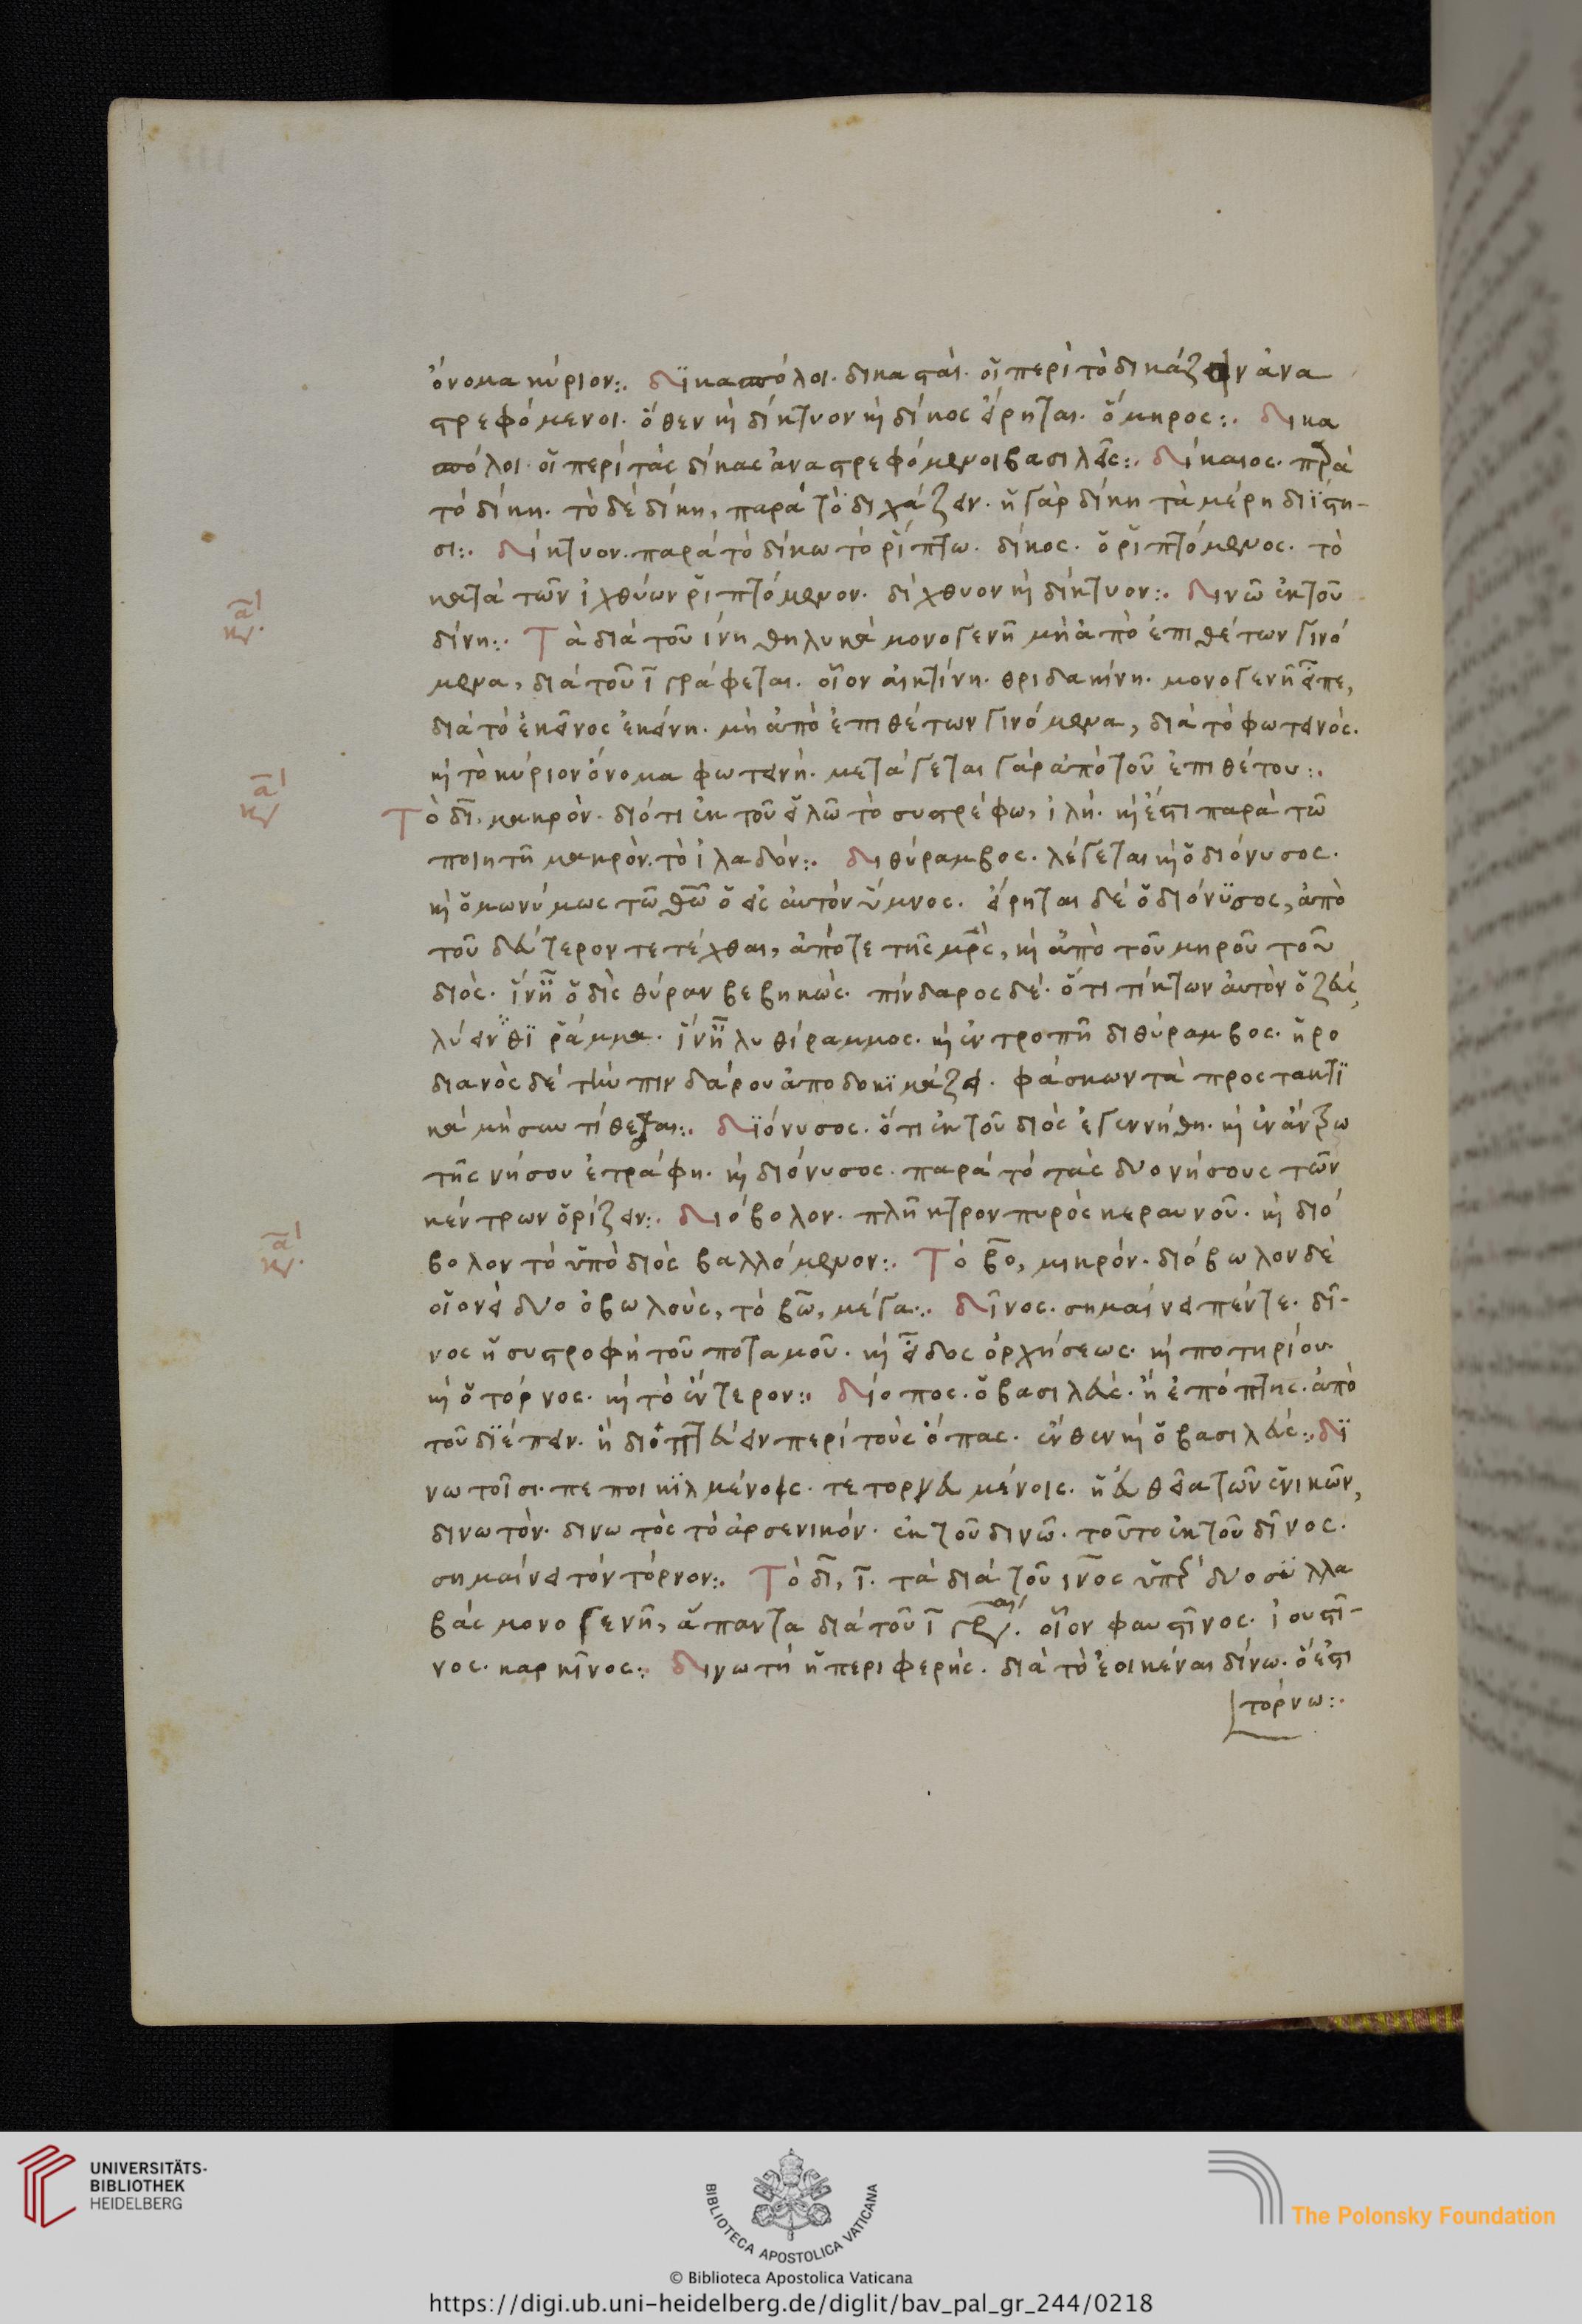 ὄνομα κύριον:. δϊκασπόλοι. δικασταί. οἱ περὶ τὸ δικάζειν ἀνα
στρεφόμενοι. ὅθεν κὶ δίκτυον κὶ δίκος εἴρηται. ὅμηρος:. δικα
σπόλοι. οἱ περὶ τὰς δίκας ἀναστρεφόμενοι βασιλεῖς:. δίκαιος. πρὰ
τὸ δίκη. τὸ δὲ δίκη, παρὰ τὸ διχάζειν. ἡ γὰρ δίκη τὰ μέρη διΐστη-
σι:. δίκτυον. παρὰ τὸ δίκω τὸ ῥίπτω. δίκος. ὁ ῥιπτόμενος. τὸ
κατὰ τῶν ἰχθύων ῥιπτόμενον. δίχθυον κὶ δίκτυον:. δινῶ ἐκ τοῦ
δίνη:. Τὰ διὰ τοῦ ίνη θηλυκὰ μονογενῆ μὴ ἀπὸ ἐπιθέτων γινό
μενα, διὰ τοῦ ι γράφεται. οἷον ἀικτίνη. θριδακίνη. μονογενῆ εἶπε,
διὰ τὸ ἐκεῖνος ἐκείνη. μὴ ἀπὸ ἐπιθέτων γινόμενα, διὰ τὸ φωτεινός.
κὶ τὸ κύριον ὄνομα φωτεινή. μετάγεται γὰρ ἀπὸ τοῦ ἐπιθέτου:.
Τὸ δι, μακρόν. διότι ἐκ τοῦ εἰλῶ τὸ συστρέφω, ἰλή. κὶ ἔστι παρὰ τῶ
ποιητῆ μακρὸν. τὸ ἰλαδόν:. διθύραμβος. λέγεται κὶ ὁ διόνυσος.
κὶ ὁμωνύμως τῶ θῶ ὁ εἰς αὐτὸν ὕμνος. εἴρηται δὲ ὁ διόνϋσος, ἀπὸ
τοῦ δεύτερον τετέχθαι, ἀπότε τῆς μρς, κὶ ἀπὸ τοῦ μηροῦ τοῦ
διός. ἵν ἦ ὁ δὶς θύραν βεβηκώς. πίνδαρος δέ. ὅτι τίκτων αὐτὸν ὁ ζεύς,
λύειν θϊ ῥάμμα. ἵν ἦ λυθίραμμος. κὶ ἐν τροπῆ διθύραμβος. ἡρο
διανὸς δὲ τὴν πινδάρου ἀποδοκϊμάζει. φάσκων τὰ προστακτϊ
κὰ μὴ συντίθεται:. δϊόνυσος. ὅτι ἐκ τοῦ διὸς ἐγεννήθη. κὶ ἐν νάξω
τῆς νήσου ἐτράφη. κὶ διόνυσος. παρὰ τὸ τὰς δυο νήσους τῶν
κέντρων ὁρίζειν:. διόβολον. πλῆκτρον πυρὸς κεραυνοῦ. κὶ διό
βολον τὸ ὑπὸ διὸς βαλλόμενον:. Τὸ βο, μικρόν. διόβωλον δὲ
οἱονεὶ δυο ὀβωλούς, τὸ βω, μέγα:. δῖνος. σημαίνει πέντε. δῖ-
νος ἡ συστροφὴ τοῦ ποταμοῦ. κὶ εἶδος ὀρχήσεως. κὶ ποτηρίου.
κὶ ὁ τόρνος. κὶ τὸ ἔντερον:. δίοπος. ὁ βασιλεύς. ἢ ἐπόπτης. ἀπὸ
τοῦ διέπειν. ἢ διοπτεύειν περὶ τοὺς ὄπας. ἔνθεν κὶ ὁ βασιλεύς:. δϊ
νωτοῖσι. πεποικϊλμένοις. τετορνευμένοις. ἡ εὐθεῖα τῶν ἑνικῶν,
δινωτόν. δινωτὸς τὸ ἀρσενικόν. ἐκ τοῦ δινῶ. τοῦτο ἐκ τοῦ δῖνος.
σημαίνει τὸν τόρνον:. Τὸ δι, ι. τὰ διὰ τοῦ ινος ὑπὲρ δυο σϋλλα
βὰς μονογενῆ, ἅπαντα διὰ τοῦ ι γρ. οἷον φαυστῖνος. ἰουστῖ-
νος. καρκῖνος:. δινωτὴ ἡ περιφερής. διὰ τὸ ἐοικέναι δίνω. ὅ ἐστι
τόρνω:.
UNIVERSITÄTS-
BIBLIOTHEK
HEIDELBERG
BIBLIOTECA APOSTOLICA VATICANA
The Polonsky Foundation
© Biblioteca Apostolica Vaticana
https://digi.ub.uni-heidelberg.de/diglit/bav_pal_gr_244/0218